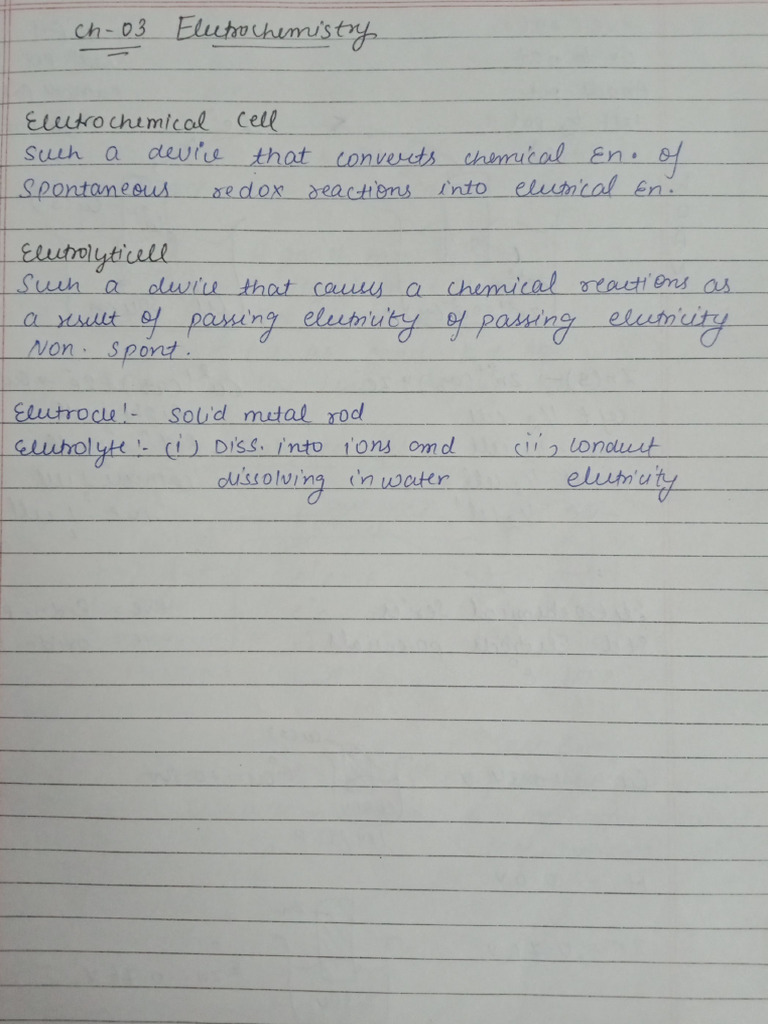 Ch-03 Electrochemistry
Electrochemical Cell
Such a device that converts chemical En. of
Spontaneous redox reactions into electrical En.
Electrolyticell
Such a device that causes a chemical reactions as
a result of passing electricity of passing electricity
Non. Spont.
Electrode:- Solid metal rod
Electrolyte:- (i) Diss. into ions and (ii) Conduct
dissolving in water electricity